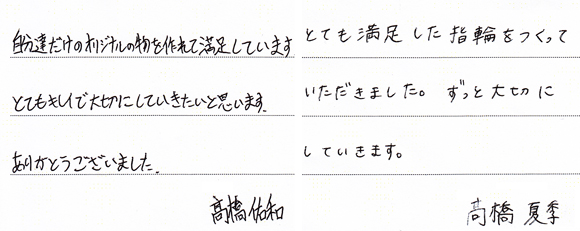 自分達だけのオリジナルの物を作れて満足しています
とてもキレイで大切にしていきたいと思います.
ありがとうございました.
高橋佑和
とても満足した指輪をつくって
いただきました。ずっと大切に
していきます。
高橋夏季